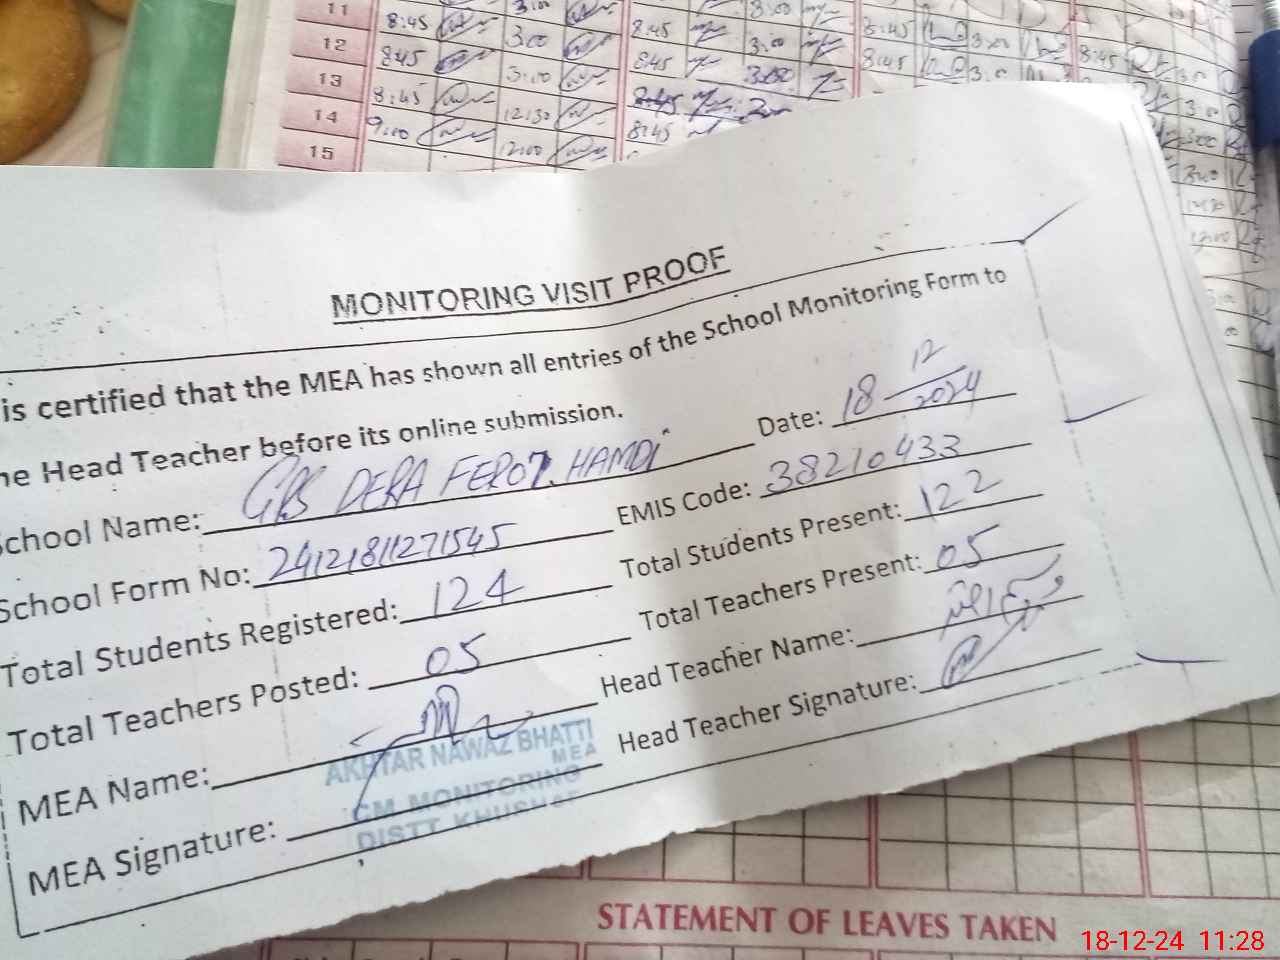 11 8:45 3:00 8:45 8:00 8:45 3:00 8:45
12 8:45 3:00 8:45 3:00 8:45 3:0 8:45 3:0
13 8:45 3:00 8:45 3:00
14 9:00 12:30 8:45
15 12:00
MONITORING VISIT PROOF
is certified that the MEA has shown all entries of the School Monitoring Form to
he Head Teacher before its online submission.
Date: 18-12/2024
chool Name: GPS DERA FEROZ HAMDI
EMIS Code: 38210433
School Form No: 24121811271545
Total Students Present: 122
Total Students Registered: 124
Total Teachers Present: 05
Total Teachers Posted: 05
Head Teacher Name:
MEA Name:
Head Teacher Signature:
AKHTAR NAWAZ BHATTI
MEA
CM MONITORING
DISTT KHUSHAB
MEA Signature:
STATEMENT OF LEAVES TAKEN
18-12-24 11:28